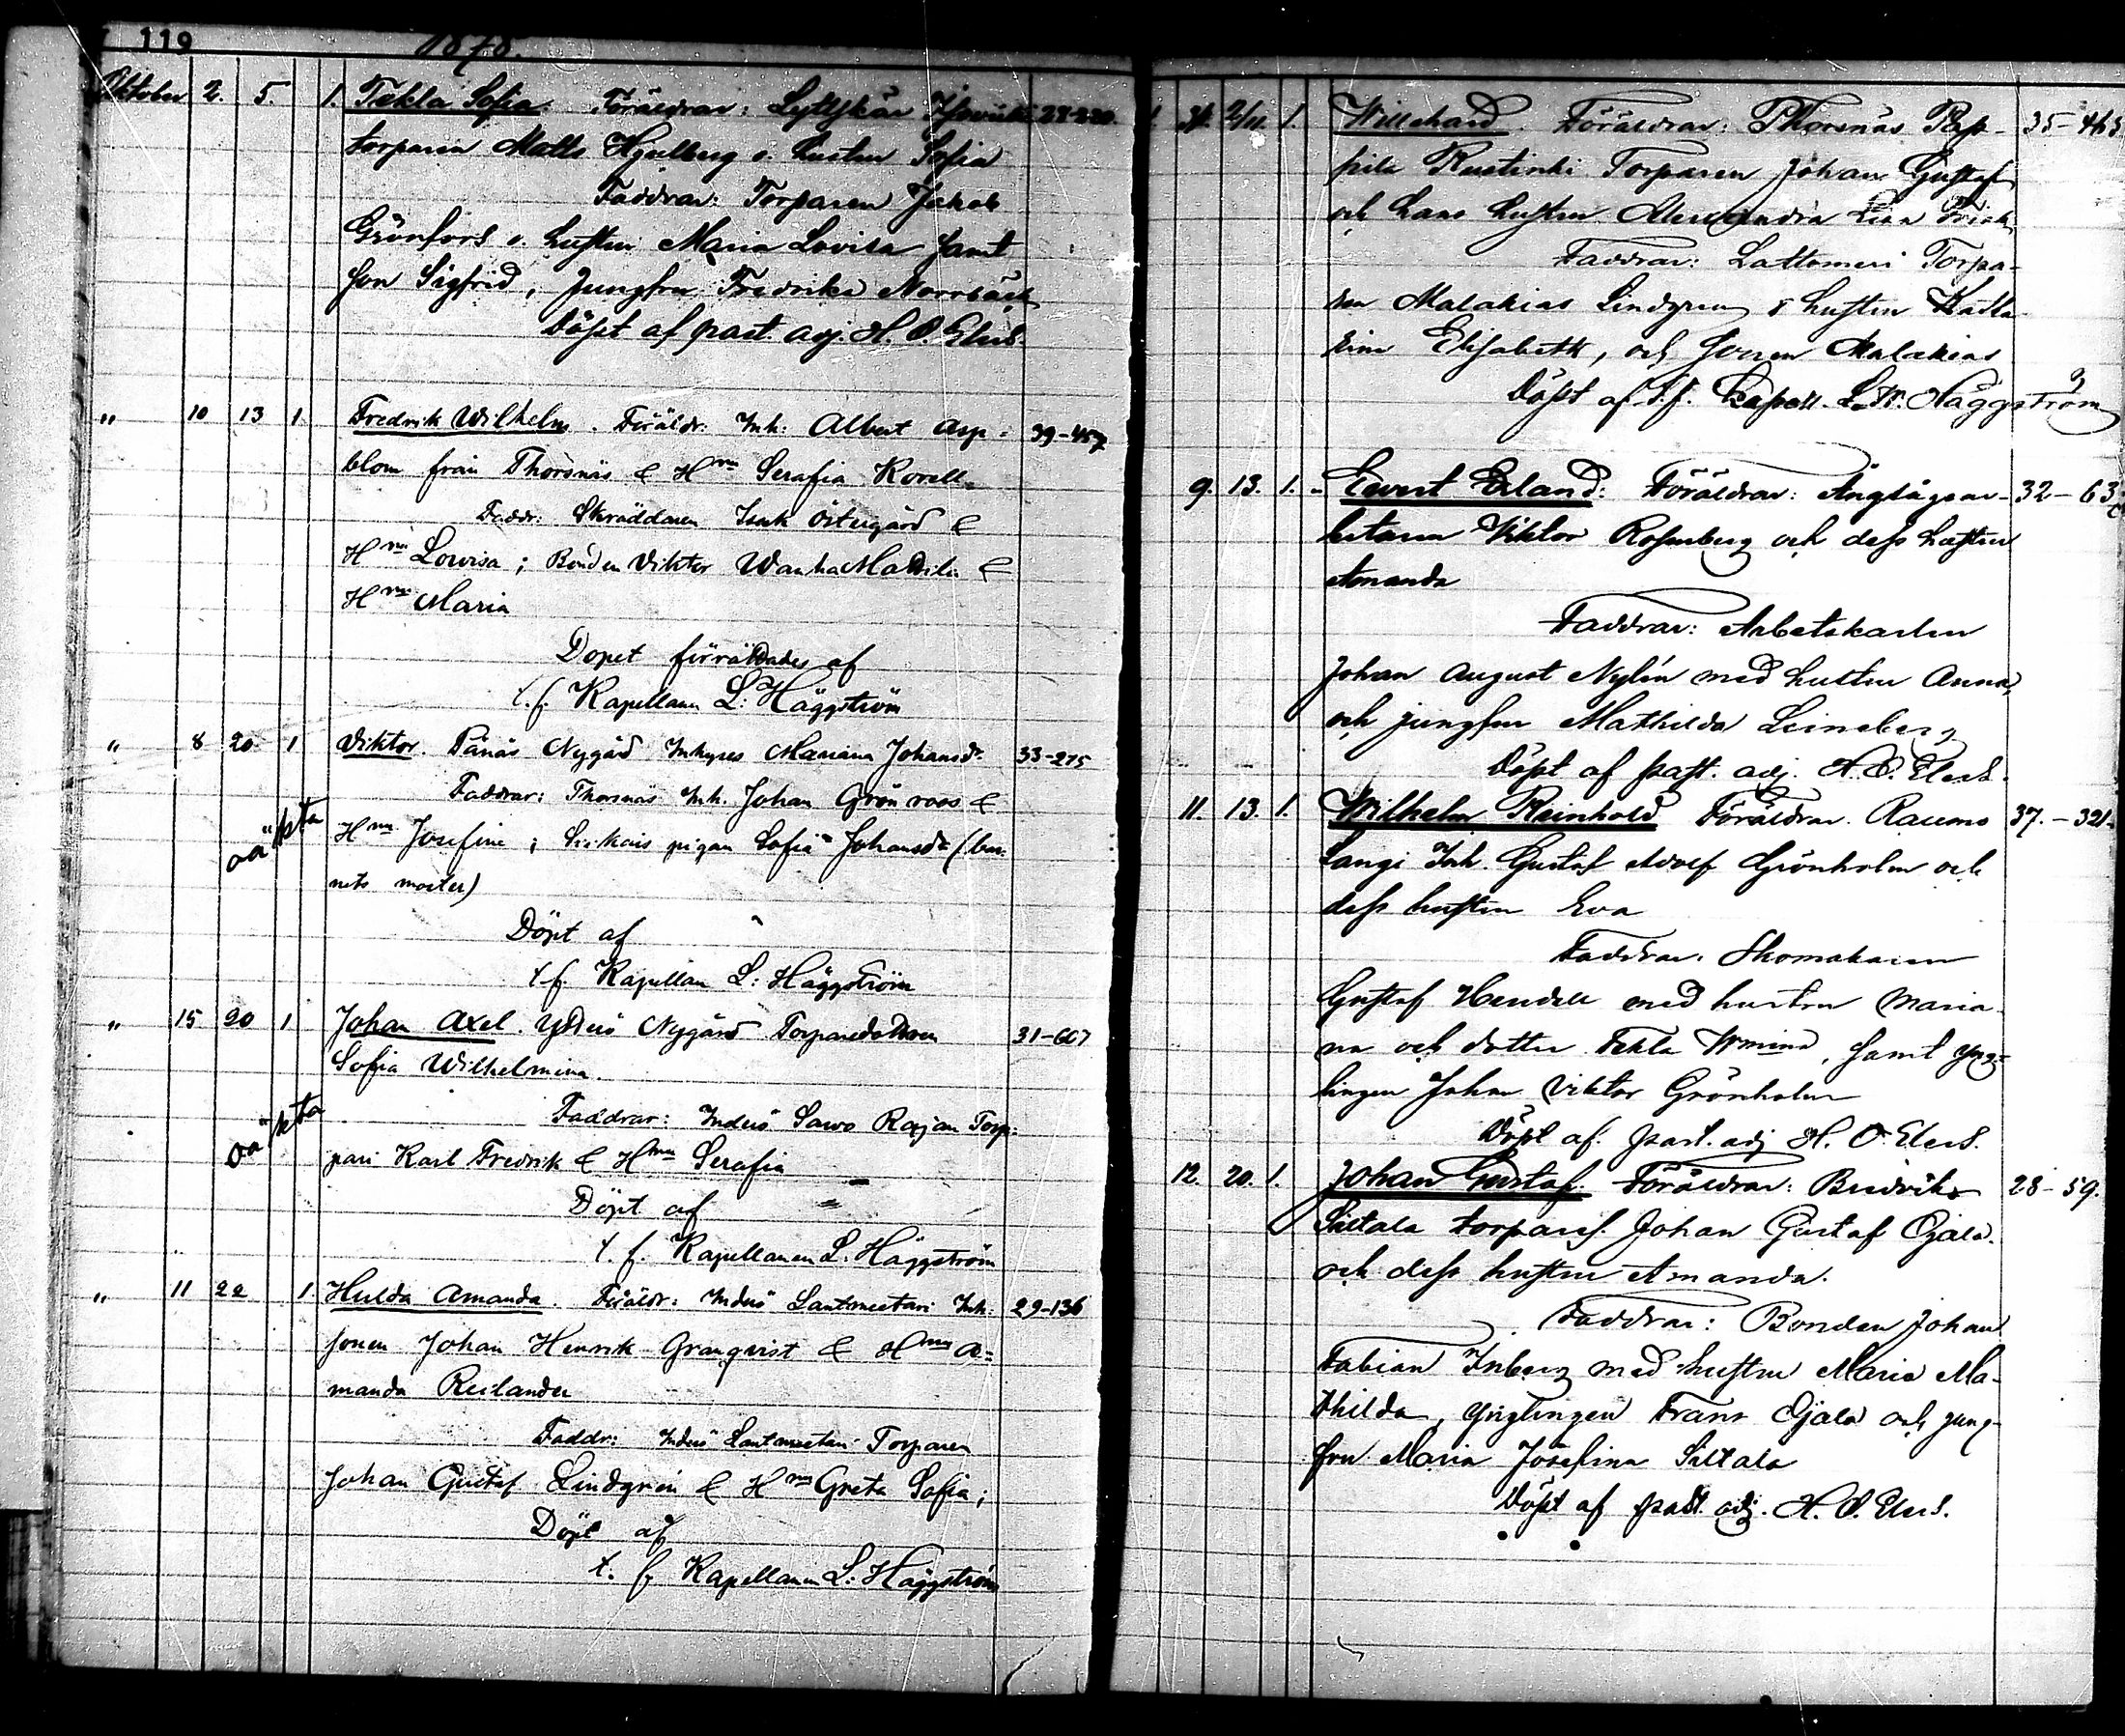 119
1878.
Oktober 2. 5. 1. Tekla Sofia. Föräldrar: Lyttskär 28-220.
torparen Matts Hjulberg o. hustru Sofia
Faddrar: Torparen Jakob
Grönfors o. hustru Maria Lovisa samt
son Sigfrid, Jungfru Fredrika Norrbäck
Döpt af past. adj. H. O. Elers.
" 10 13 1. Fredrik Wilhelm. Föräldr: Inh: Albert Asp- 39-457
blom från Thorsnäs & Hrn Serafia Korell
Faddr: Skräddaren Isak Östergård &
Hrn Lovisa; Bonden Viktor WanhaMattila &
Hrn Maria
Dopet förrättades af
t.f. Kapellann L: Häggström
" 8 20. 1 Viktor. Pånäs Nygård Inhyses Mariana Johansdr 33-275
Faddrar: Thorsnäs Inh. Johan Grönroos &
oäkta Hrn Josefina; pigan Sofia Johansdr (bar-
nets moster)
Döpt af
t.f. Kapellan L: Häggström
" 15 20 1 Johan Axel. Ytterö Nygård Torparedottren 31-607
Sofia Wilhelmina.
Faddrar: Inderö Sawo Rajan Torp-
oäkta pari Karl Fredrik & Hrn Serafia
Döpt af
t. f. Kapellanen L. Häggström
" 11 22 1. Hulda Amanda. Föräldr: Inderö Lantmeetari Inh: 29-136
sonen Johan Henrik Granqvist & Hrn A=
manda Reilander
Faddr: Inderö Lantmeetari Torparen
Johan Gustaf Lindgren & Hrn Greta Sofia;
Döpt af
t. f. Kapellanen L: Häggström
31. 2/11. 1. Willehard. Föräldrar: Thorsnäs Pap- 35-463
pila Torparen Johan Gustaf
och hans hustru Alexandra Lina
Faddrar: Lattomeri Torpa-
ren Malakias Lindgren o hustru Katha
rina Elisabeth, och sonen Malakias
Döpt af t.f. Kapell. L. W. Häggström
9. 13. 1. Evert Erland: Föräldrar: Ångsågsar- 32-63
betaren Viktor Rosenberg och dess hustru
Amanda
Faddrar: Arbetskarlen
Johan August Nylén med hustru Anna,
och jungfru Mathilda Leineberg
Döpt af past. adj. H. O. Elers.
11. 13. 1. Wilhelm Reinhold Föräldrar. Raumo 37.-321.
Langi Inh. Gustaf Adolf Grönholm och
dess hustru Eva
Faddrar. Skomakaren
Gustaf Hendell med hustru Maria-
na och dotter Tekla Wmina, samt yng=
lingen Johan Viktor Grönholm
Döpt af. past. adj H. O. Elers.
12. 20. 1. Johan Gustaf. Föräldrar: Bredviks 28-59.
Siltala torpares. Johan Gustaf Ojala.
och dess hustru Amanda.
Faddrar: Bonden Johan
Fabian Inberg med hustru Maria Ma-
thilda, ynglingen Frans Ojala och jung-
fru Maria Josefina Siltala
Döpt af past. adj. H. O. Elers.